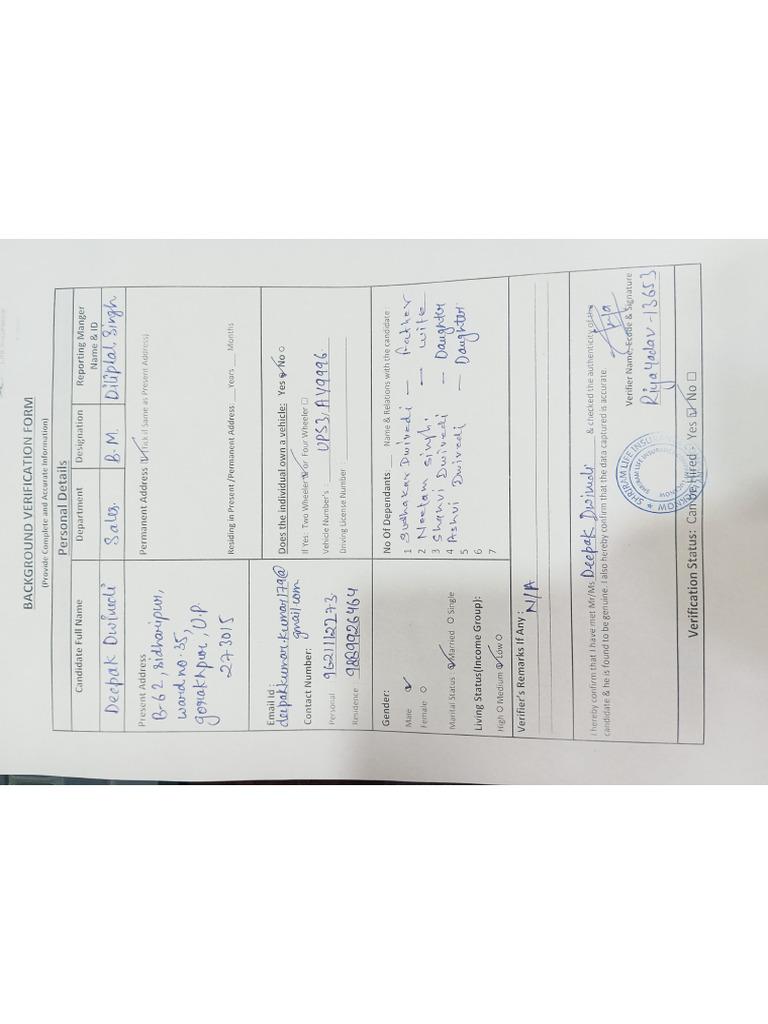 BACKGROUND VERIFICATION FORM
(Provide Complete and Accurate Information)
Personal Details
Candidate Full Name Department Designation Reporting Manger Name & ID
Deepak Dwivedi Sales. B.M. Diliptal Singh
Present Address
B-62, Sidharipur,
ward no. 35,
gorakhpur, U.P
273015
Permanent Address ☑ (Tick if Same as Present Address)
Residing in Present /Permanent Address: ___Years ___ Months
Email Id :
deepakkumar.kumar179@
gmail.com
Contact Number:
Personal 9621112273
Residence : 9889926464
Does the individual own a vehicle: Yes ✓ No O
If Yes: Two Wheeler ✓ or Four Wheeler ☐
Vehicle Number's : UP53, AY9996
Driving License Number
Gender:
Male ✓
Female O
Marital Status : ✓ Married O Single
Living Status(Income Group):
High O Medium ✓ Low O
No Of Dependants ___ Name & Relations with the candidate :
1 Sudhakar Dwivedi — Father
2 Neelam Singh, — wife
3 Shanvi Dwivedi — Daughter
4 Ashvi Dwivedi — Daughter
5
6
7
Verifier's Remarks If Any : N/A
I hereby confirm that I have met Mr/Ms Deepak Dwivedi & checked the authenticity of the
candidate & he is found to be genuine. I also hereby confirm that the data captured is accurate.
Verifier Name, Ecode & Signature
Riya Yadav - 13653
SHRIRAM LIFE INSURANCE
LUCKNOW
Verification Status: Can be Hired - Yes ☑ No ☐